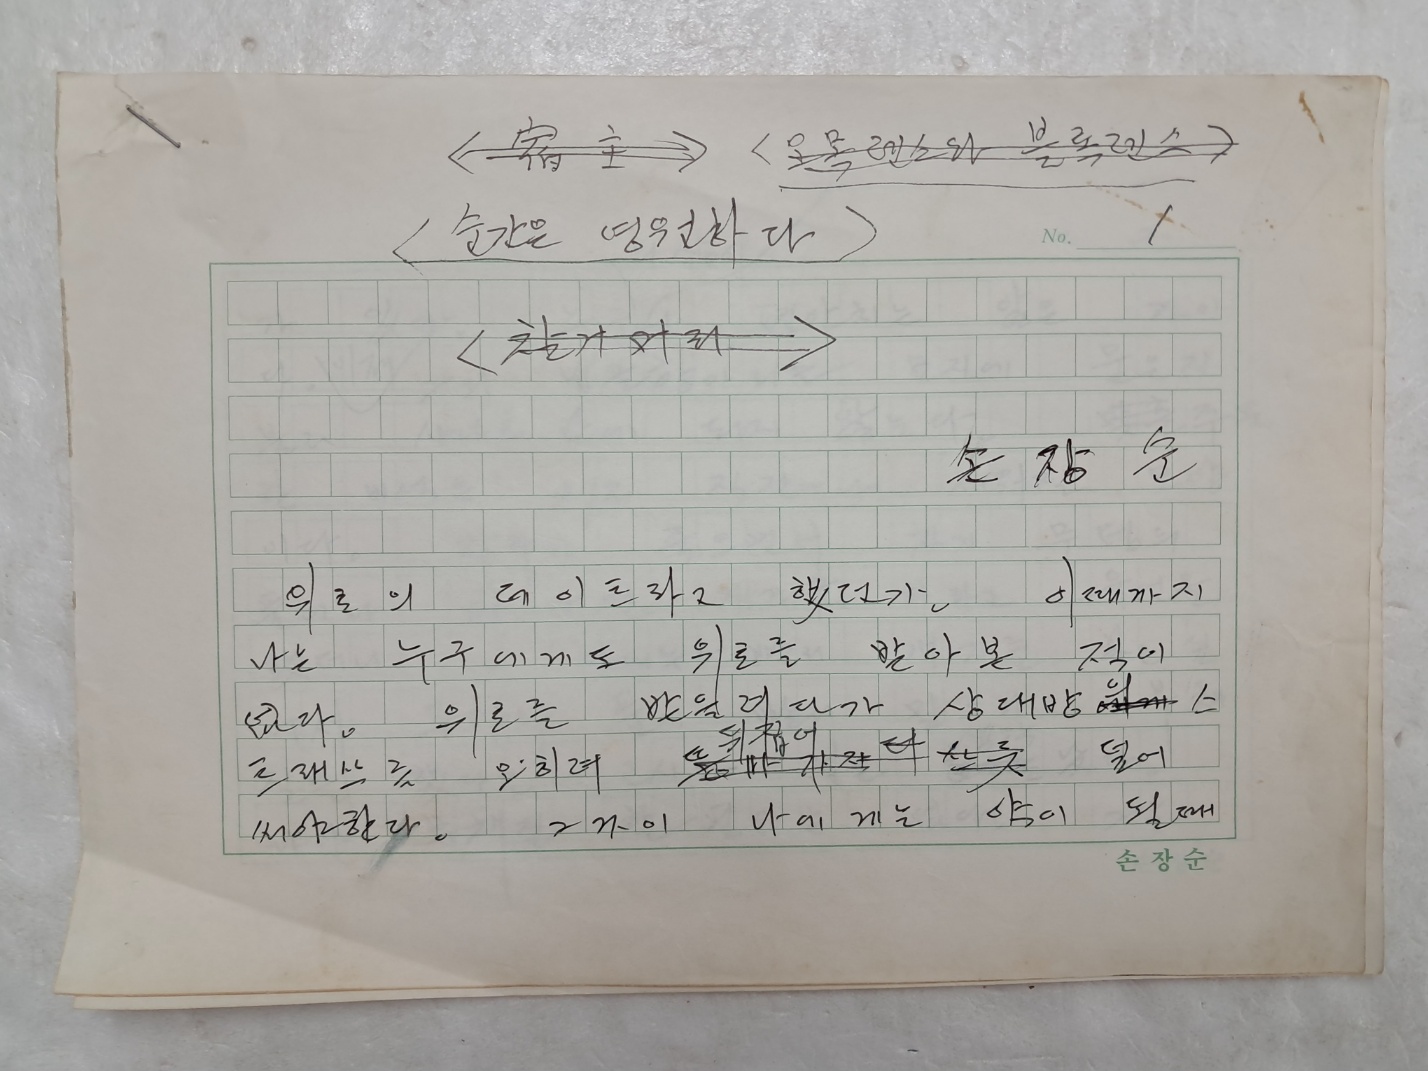 <宿主> <오목렌즈와 볼록렌즈>
<순간은 영원하다>
No. 1
<찰거머리>
손장순
위로의 데이트라고 했던가. 이때까지
나는 누구에게도 위로를 받아본 적이
없다. 위로를 받을려다가 상대방의 스
트레스를 오히려 뒤집어 덜어
써야 한다. 그 자이 나에게는 약이 될때
손장순